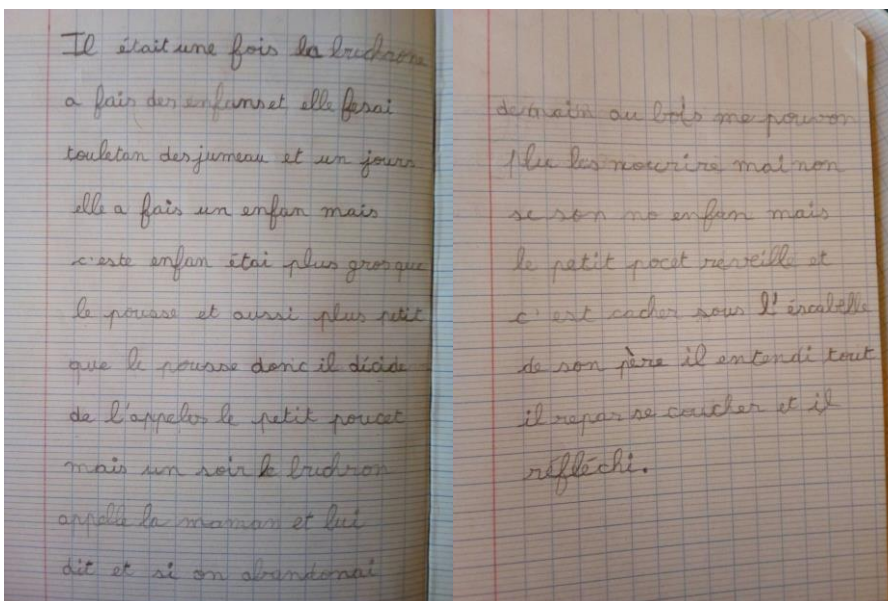 Il était une fois la buchrone
a fais des enfans et elle fesai
touletan des jumeau et un jours
elle a fais un enfan mais
c'este enfan étai plus gros que
le pousse et aussi plus petit
que le pousse donc il décide
de l'appeler le petit poucet
mais un soir le buchron
appelle la maman et lui
dit et si on abandonai
demain au bois me pouvon
plu les nourire mai non
se son no enfan mais
le petit pocet reveille et
c'est cacher sous l'éscabelle
de son père il entendi tout
il repar se coucher et il
réfléchi.